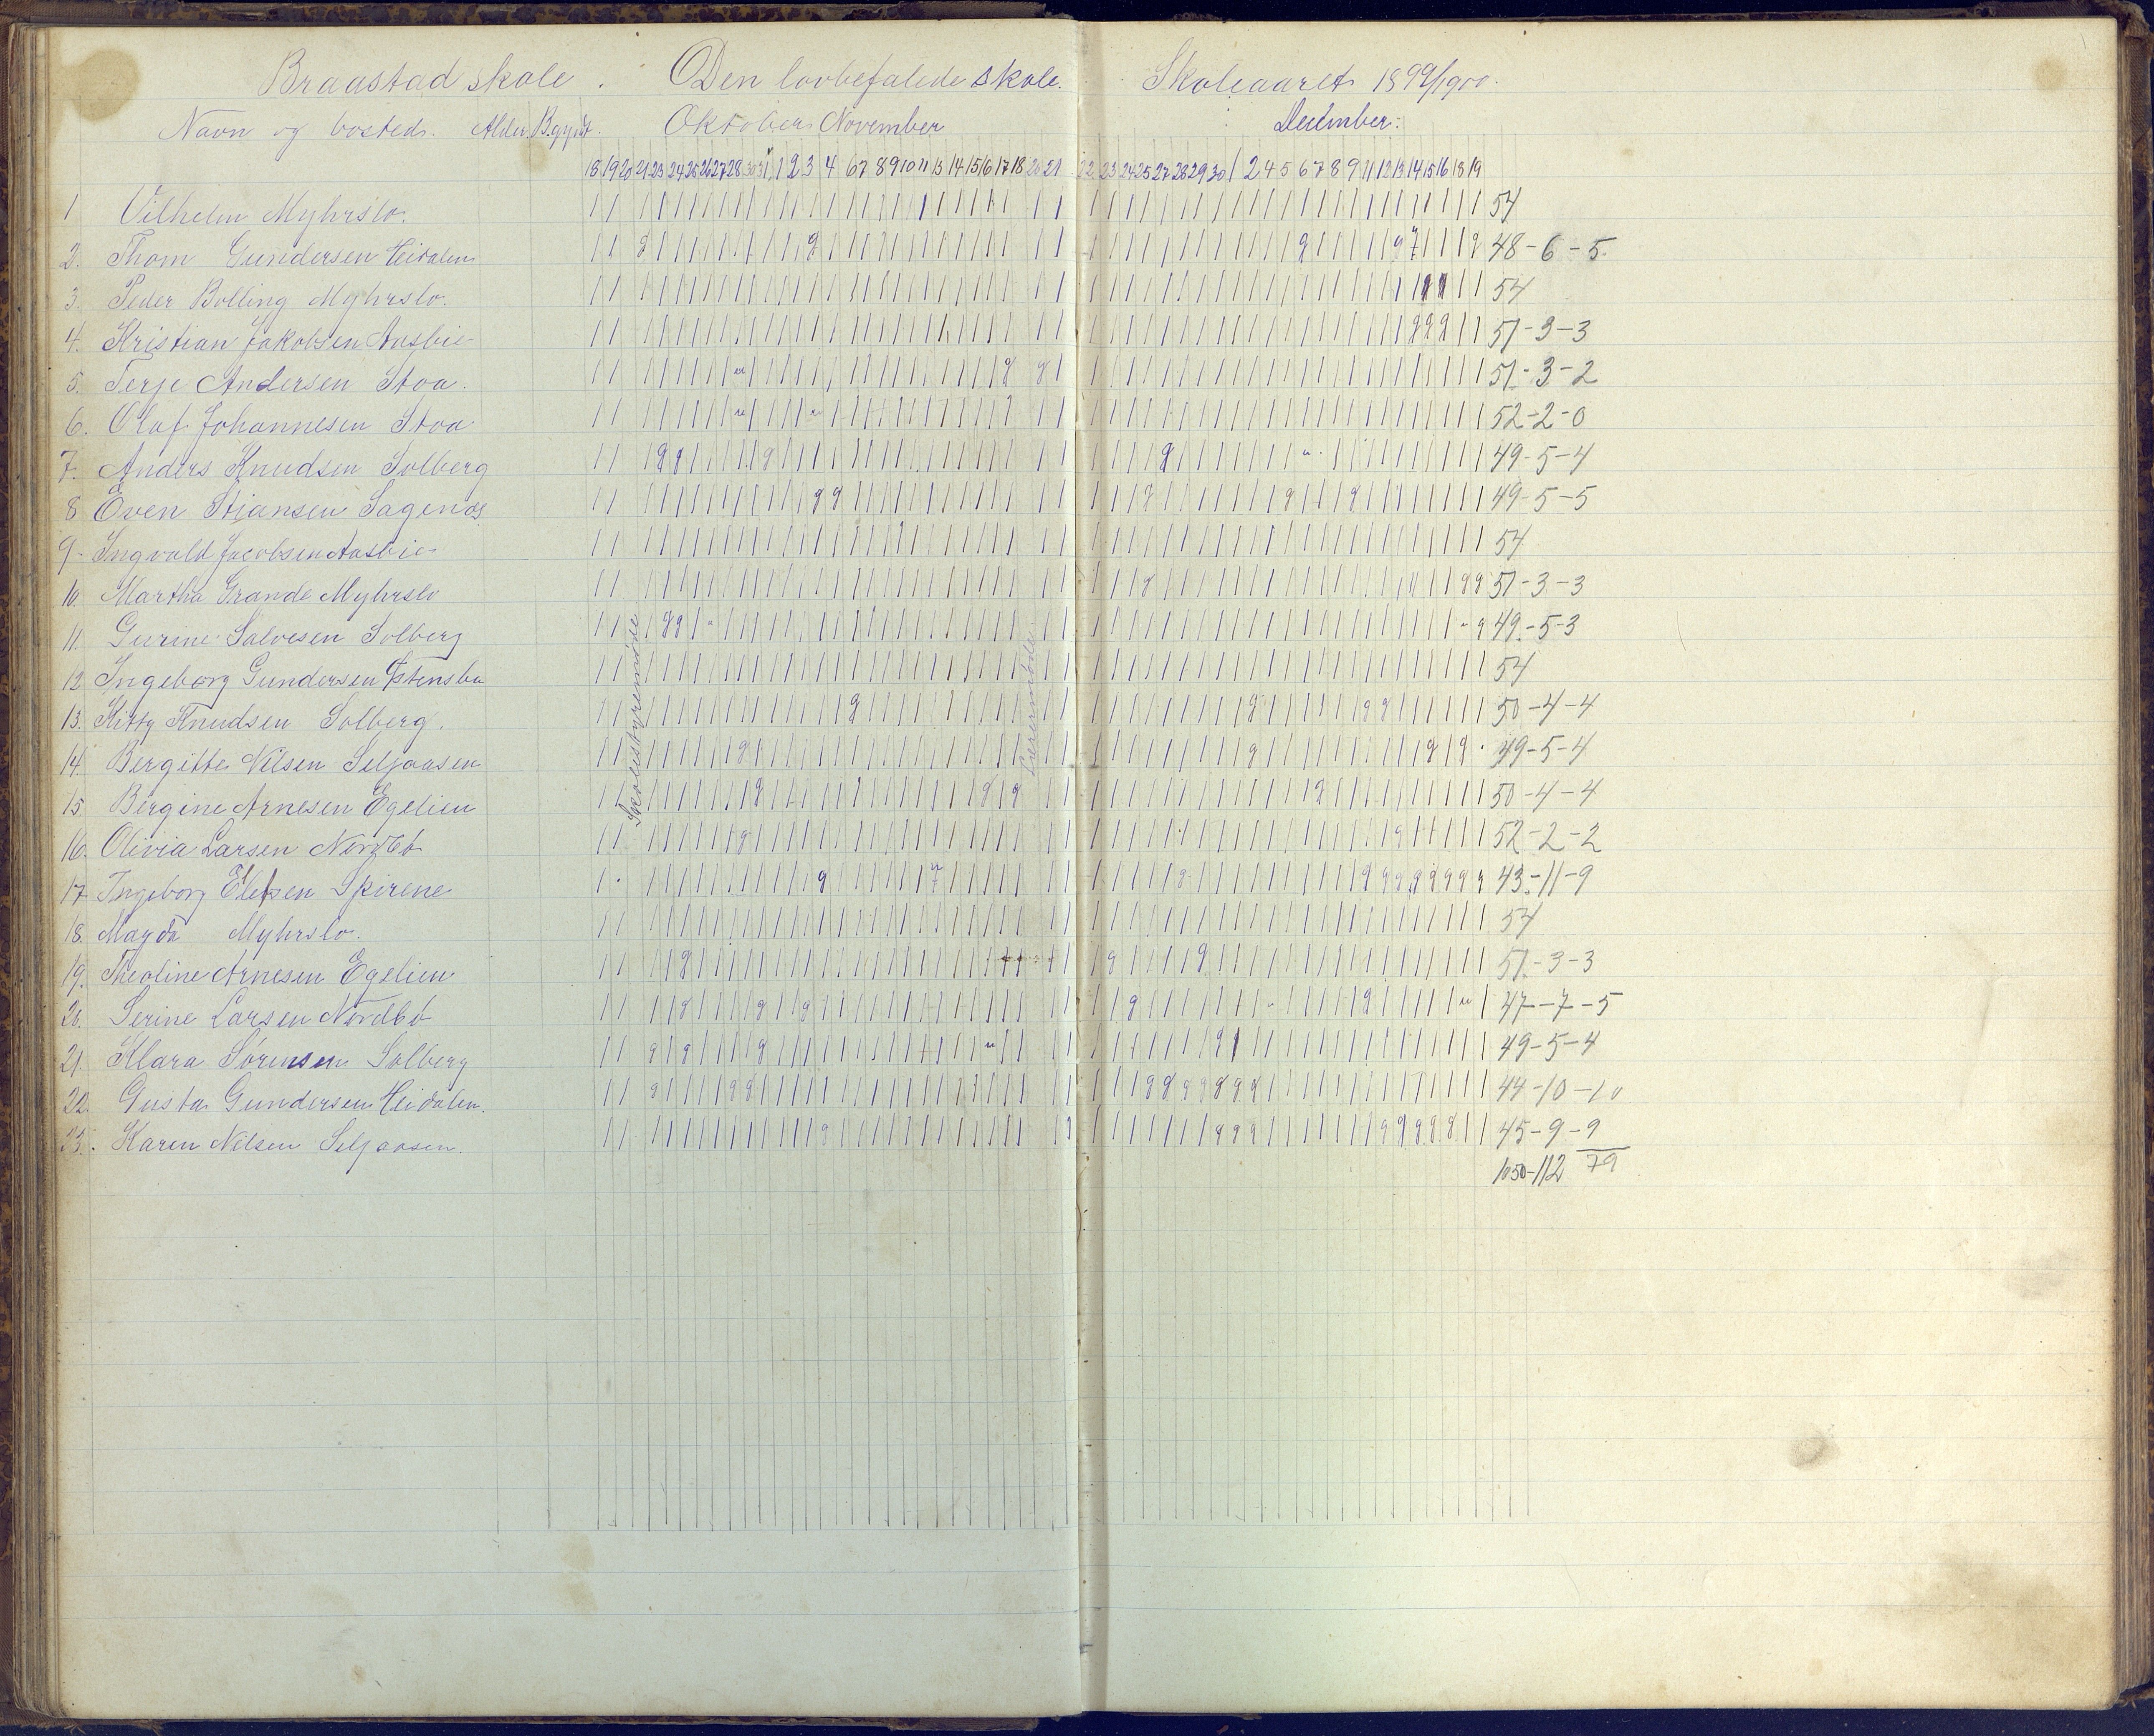 Braastad skole. Den lovbefalede skole. Skoleaaret 1899/1900.
Navn og bosted. Alder. Begynt. Oktober November December.
18 19 20 21 23 24 25 26 27 28 30 31 1 2 3 4 6 7 8 9 10 11 13 14 15 16 17 18 20 21 22 23 24 25 27 28 29 30 1 2 4 5 6 7 8 9 11 12 13 14 15 16 18 19
1 Vilhelm Myhrslo. 54
2. Thom Gundersen Heidalen 48-6-5.
3. Peder Bolling Myhrslo. 54
4. Kristian Jakobsen Aasbie 51-3-3
5. Terje Andersen Stoa. 51-3-2
6. Olaf Johannesen Stoa 52-2-0
7. Anders Knudsen Solberg 49-5-4
8 Even Stiansen Sagenæs 49-5-5
9- Ingvald Jacobsen Aasbie 54
10. Martha Grande Myhrslo 51-3-3
11. Gurine Salvesen Solberg 49-5-3
12 Ingeborg Gundersen Østensbu 54
13. Kitty Knudsen Solberg. 50-4-4
14. Bergitte Nilsen Seljaasen 49-5-4
15. Bergine Arnesen Egelien 50-4-4
16. Olivia Larsen Nordbø 52-2-2
17 Ingeborg Ellefsen Skirene 43-11-9
18. Magda Myhrslo. 54
19. Theoline Arnesen Egelien 51-3-3
20. Serine Larsen Nordbø 47-7-5
21. Klara Sørensen Solberg 49-5-4
22. Gusta Gundersen Heidalen. 44-10-10
23. Karen Nilsen Seljaasen. 45-9-9
1050-112 79
Skolestyremøde
Lærermøde